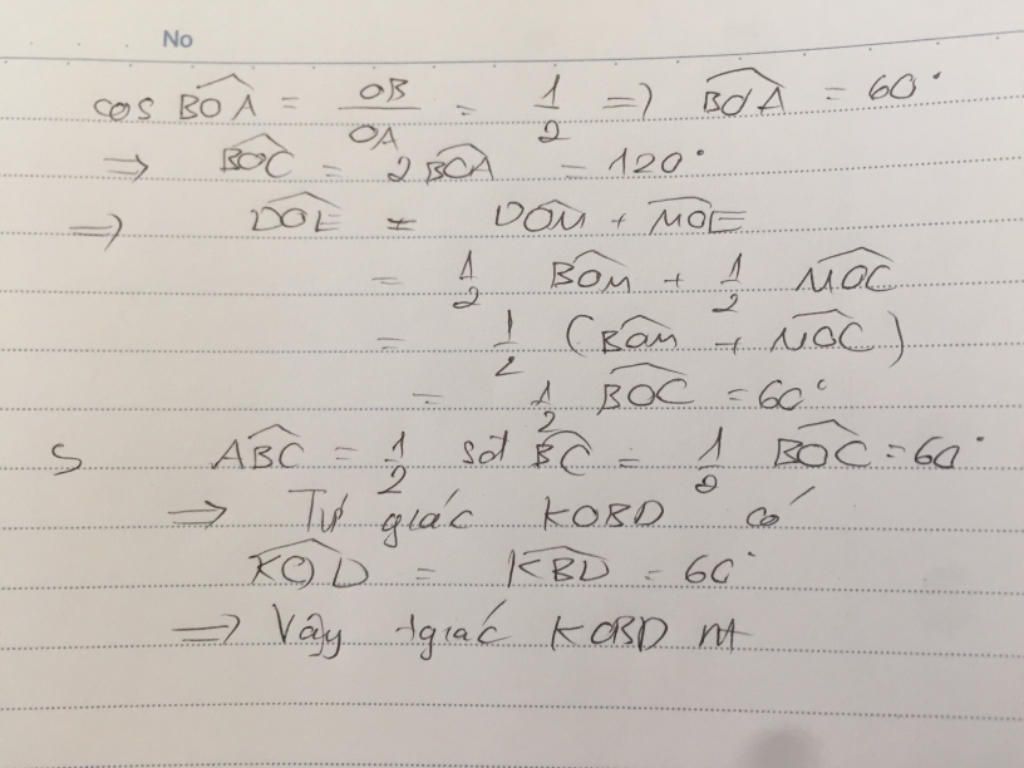 No
cos BOA = OB/OA = 1/2 => BOA = 60°
=> BOC = 2 BOA = 120°
=> DOE = DOM + MOE
= 1/2 BOM + 1/2 MOC
= 1/2 (BOM + MOC)
= 1/2 BOC = 60°
S ABC = 1/2 sđ BC = 1/2 BOC = 60°
=> Tứ giác KOBD có
KOD = KBD = 60°
=> Vậy tgiác KOBD nt